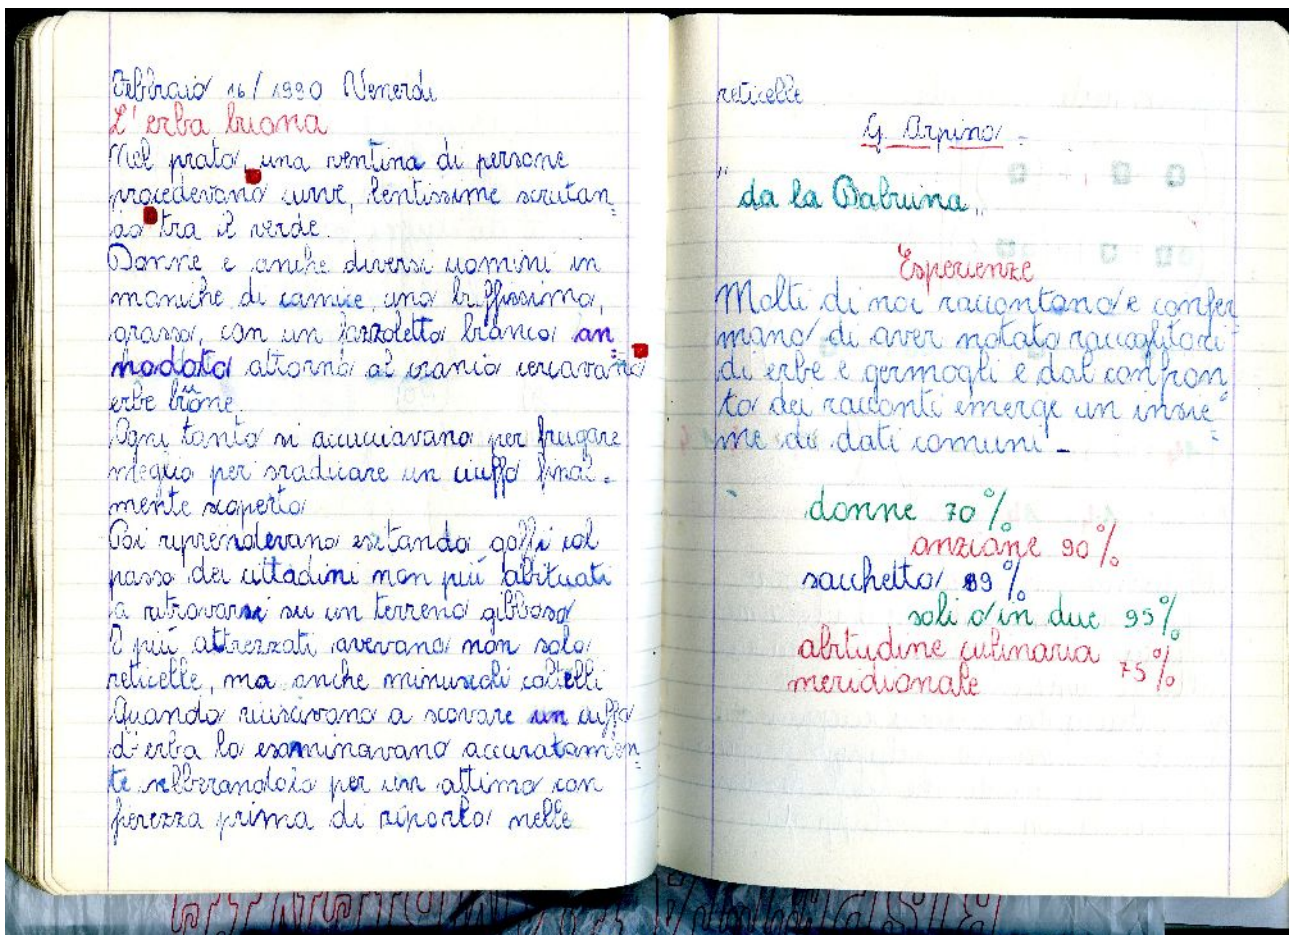 Febbraio 16/1990 Venerdì
L'erba buona
Nel prato, una ventina di persone
procedevano curve, lentissime scrutan=
do tra il verde.
Donne e anche diversi uomini in
maniche di camice, uno buffissimo,
grasso, con un fazzoletto bianco an=
nodato attorno al cranio cercavano
erbe buone.
Ogni tanto si accucciavano per frugare
meglio per sradicare un ciuffo final=
mente scoperto
Poi riprendevano esitando goffi col
passo dei cittadini non più abituati
a ritrovarsi su un terreno gibboso
I più attrezzati avevano non solo
reticelle, ma anche minuscoli coltelli
Quando riuscivano a scovare un ciuffo
d'erba lo esaminavano accuratamen=
te per un attimo con
fierezza prima di riporlo nelle
reticelle
G. Arpino -
"da la Babuina"
Esperienze
Molti di noi raccontano e confer=
mano di aver notato raccoglitori
di erbe e germogli e dal confron
to dei racconti emerge un insie=
me di dati comuni -
donne 70%
anziane 90%
sacchetto 89%
soli o in due 95%
abitudine culinaria
meridionale 75%